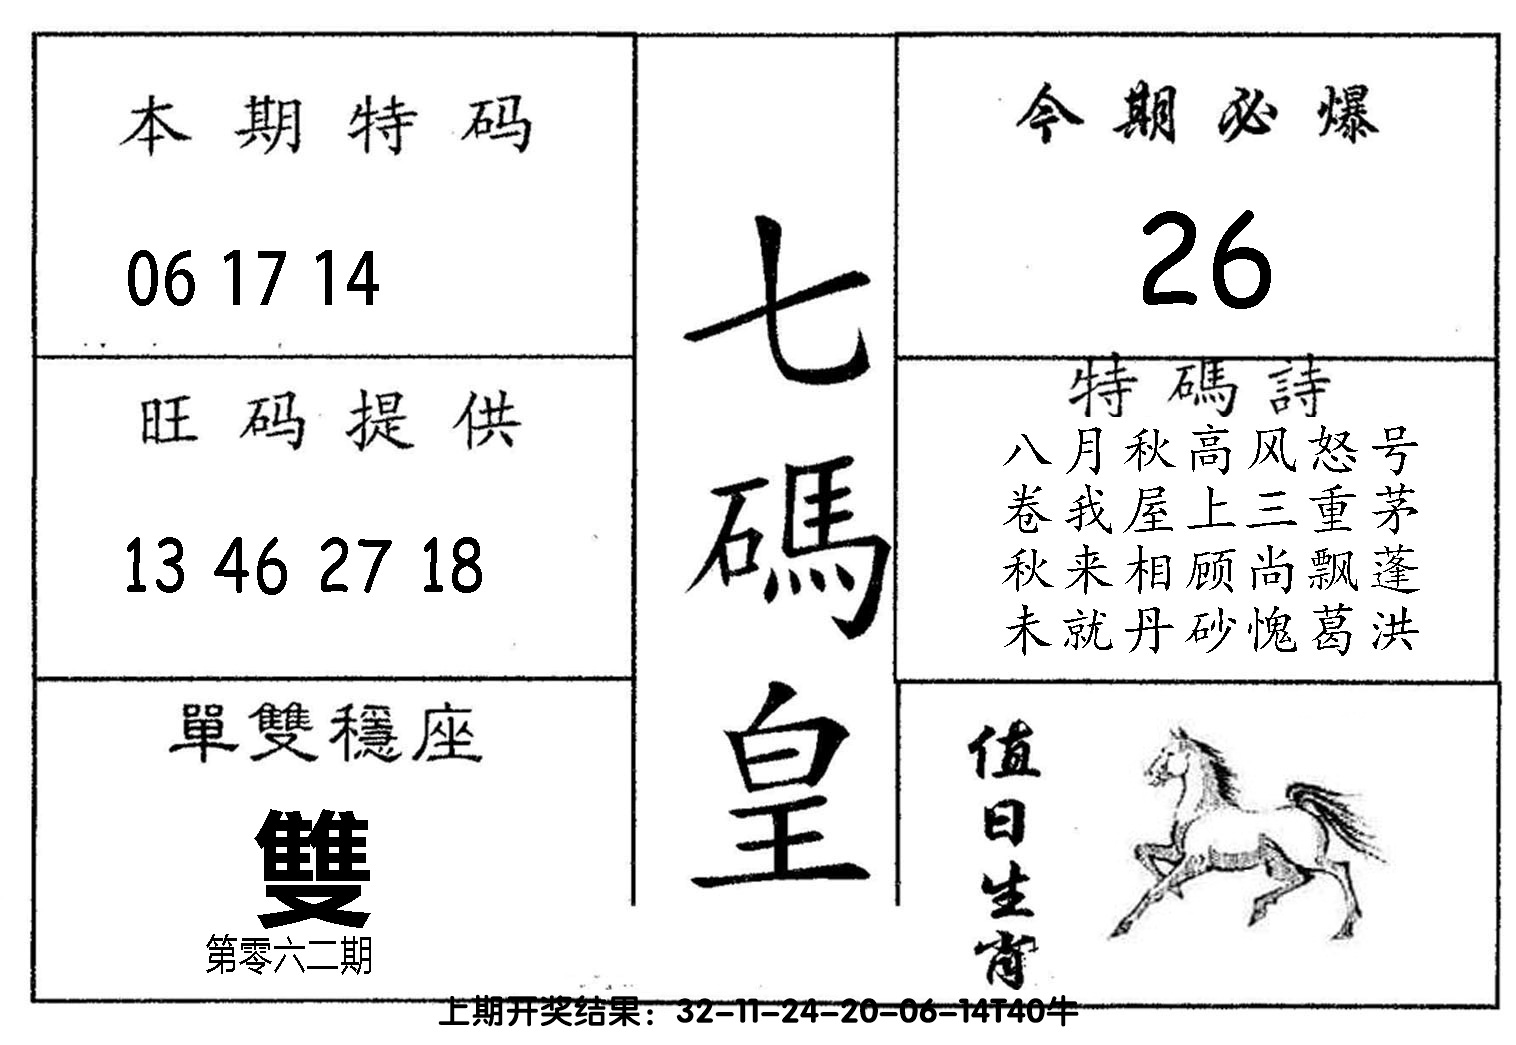 本期特码
06 17 14
旺码提供
13 46 27 18
單雙穩座
雙
第零六二期
七碼皇
今期必爆
26
特碼詩
八月秋高风怒号
卷我屋上三重茅
秋来相顾尚飘蓬
未就丹砂愧葛洪
值日生肖
上期开奖结果：32-11-24-20-06-14T40牛